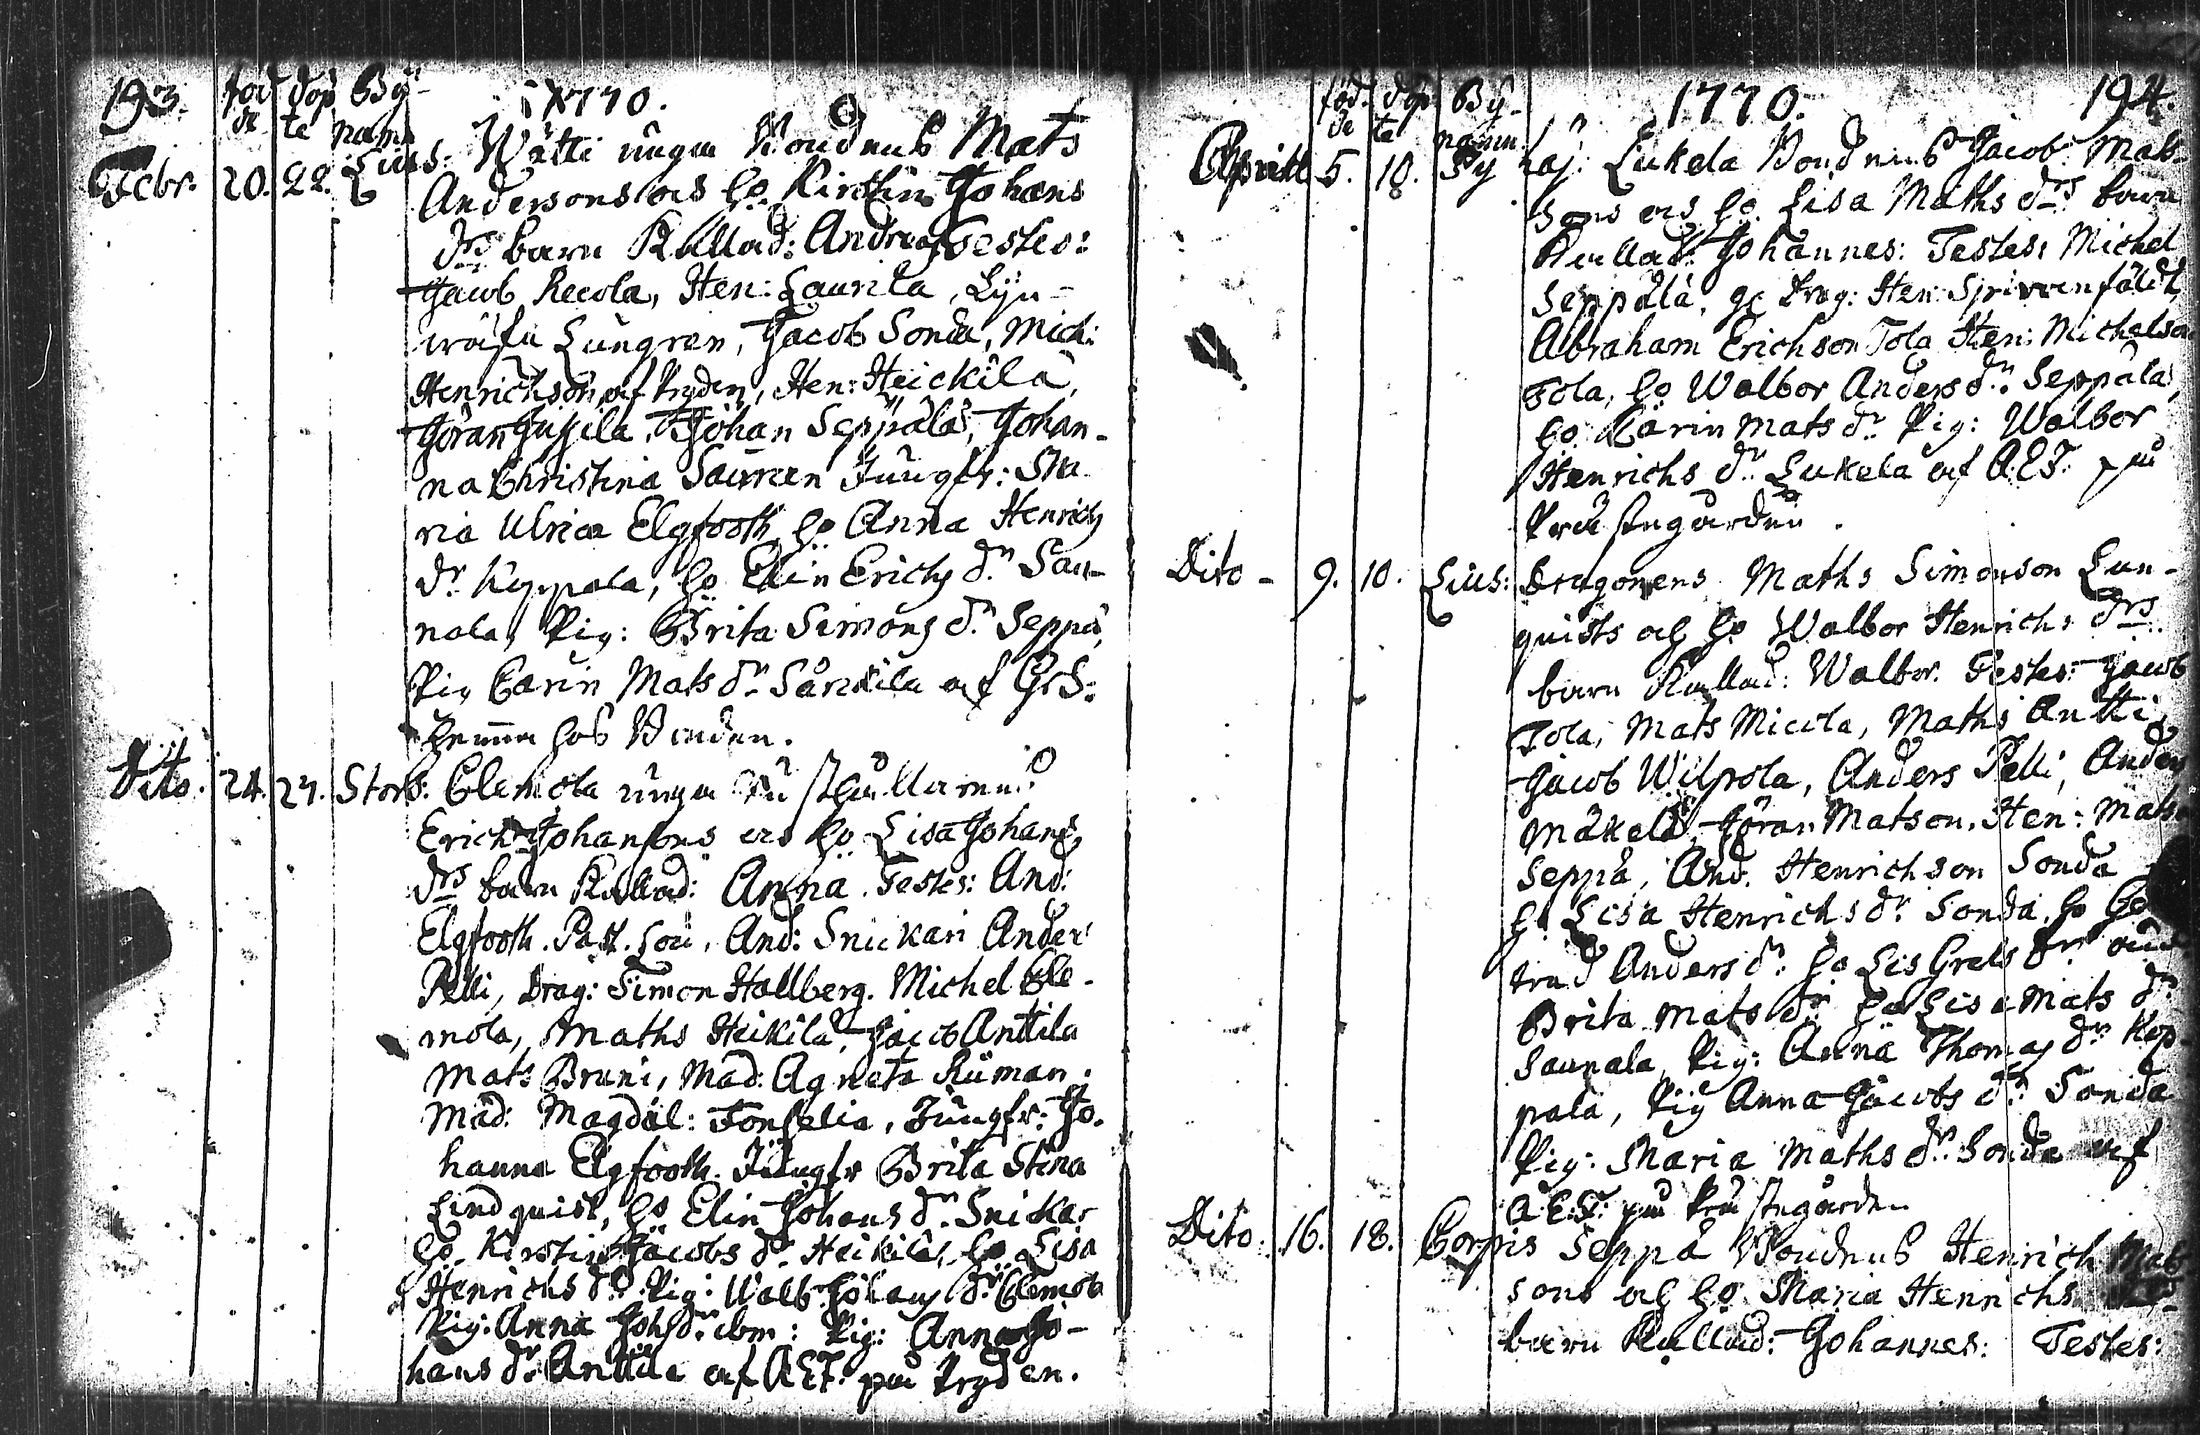 193. föd de döp te By namn 1770.
Febr. 20. 22. Lius: Wätti unga Bondens Mats
Andersons och Ho. Kirstin Johans
drs barn Kallad: Andreas Testes:
Jacob Recola, Hen: Laurila, Lijn
Lungren, Jacob Sonda, Mich:
Henrichson af Pryden, Hen: Heickilä,
Göran Jussila, Johan Seppälä, Johan-
na Christina Sauren Jungfr: Ma
ria Ulrica Elgfooth, Ho Anna Henrichs
dr Kyppola, Ho Elin Erichs dr. Sau-
nala, Pig: Brita Simons dr. Seppä,
Pig Carin Mats dr. Särkilä af
hemma hos Bonden.
Dito. 24. 27. Storb: Clemola unga
Erich Johansons och Ho Lisa Johans
drs barn Kallad: Anna. Testes: And:
Elgfooth. Past. Lou, And: Snickari Anders
Pelli, Drag: Simon Hallberg. Michel Cle-
mola, Maths Heikilä, Jacob Anttila
Mats Bruni, Mad: Agneta Ruman.
Mad: Magdal: Fonselia, Jungfr: Jo-
hanna Elgfooth. Jungfr Brita Stina
Lindquist, Ho Elin Johans dr. Snickar
Ho. Kirstin Jacobs dr. Heikilä, Ho Lisa
Henrichs dr. Pig: Walb: Johans dr Clemola
Pig: Anna Joh: dr. ibm: Pig: Anna Jo-
hans dr Anttila af AEF. på Pryden.
föd de döp te By namn 1770. 194.
Aprill 5. 18. Py haj: Lukela Bondens Jacob Mats
sons och Ho. Lisa Maths drs barn
Kallad: Johannes: Testes: Michel
Seppälä, Drag: Hen:
Abraham Erichson Tola Hen: Michelson
Tola, Ho Walbor Anders dr. Seppälä,
Ho. Karin Mats dr. Pig: Walbor
Henrichs dr. Lukela af A.E.F. på
Prästegården.
Dito - 9. 10. Lius: Dragonens Maths Simonson Lun-
quists och Ho Walbor Henrichs drs
barn Kallad: Walbor. Testes: Jacob
Tola, Mats Micola, Maths Antti,
Jacob Wilpola, Anders Pelli, Anders
Mäkelä, Göran Matson, Hen: Mats
Seppä, And. Henrichson Sonda
Ho. Lisa Henrichs dr. Sonda, Ho
trud Anders dr. Ho Lis Grels dr.
Brita Mats dr. Ho Lisa Mats dr.
Saunala, Pig: Anna Thomas dr. Kop
pala, Pig Anna Jacobs dr. Sonda
Pig: Maria Maths dr. Sonda af
A.E.F. på Prästegården
Dito: 16. 18. Corpis Seppä Bondens Henrich Mats
sons och Ho. Maria Henrichs
barn Kallad: Johannes: Testes: